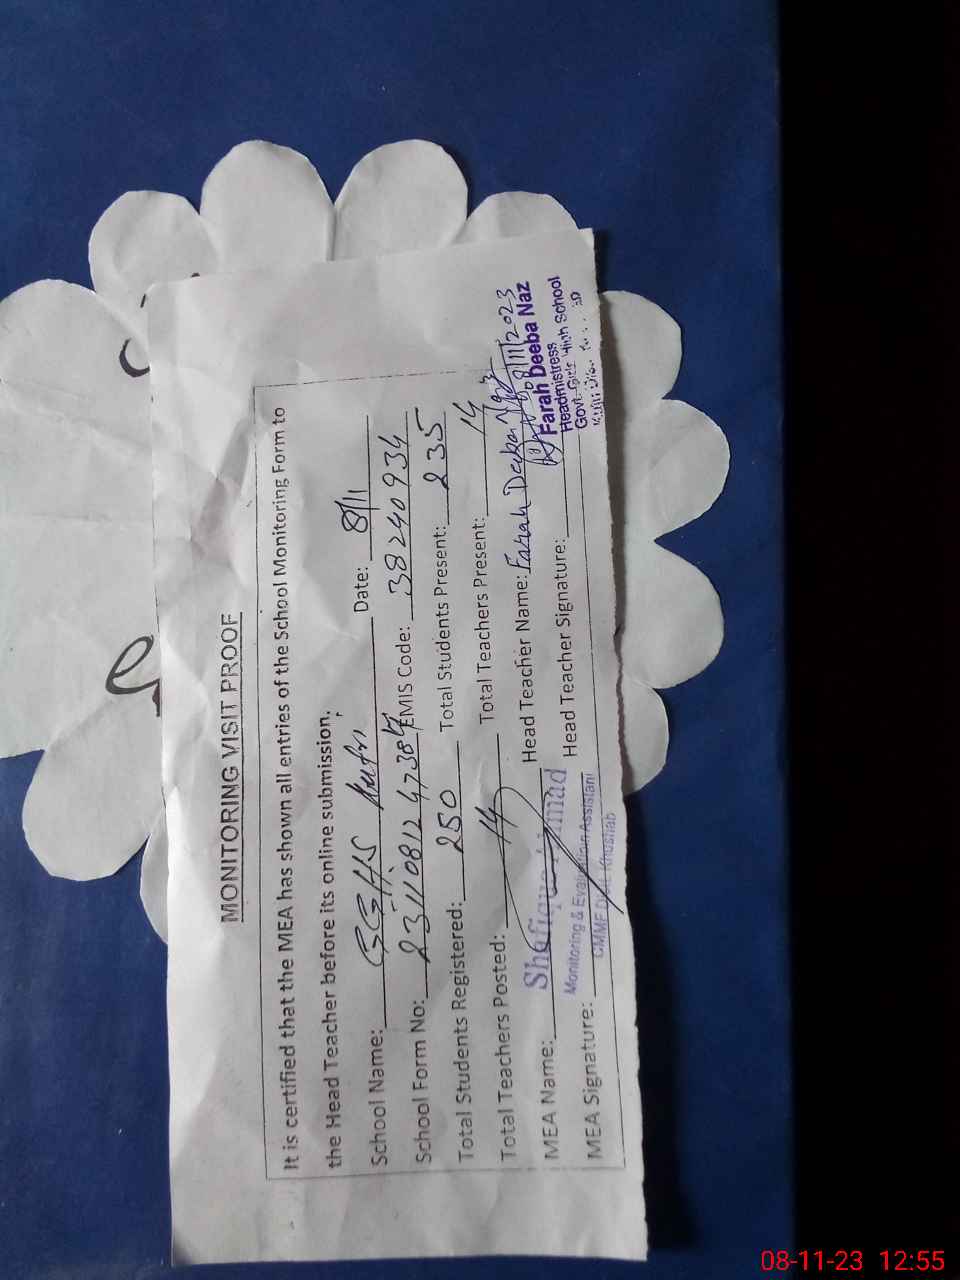 MONITORING VISIT PROOF
It is certified that the MEA has shown all entries of the School Monitoring Form to
the Head Teacher before its online submission.
School Name: GGHS Kufri Date: 8/11
School Form No: EMIS Code: 38240934
Total Students Registered: 250 Total Students Present: 235
Total Teachers Posted: 14 Total Teachers Present: 14
MEA Name: Shafique Ahmad Head Teacher Name: Farah Deeba Naz
Monitoring & Evaluation Assistant
CMMF Distt. Khushab
MEA Signature: Head Teacher Signature: 08/11/2023
Farah Deeba Naz
Headmistress
Govt. Girls High School
08-11-23 12:55